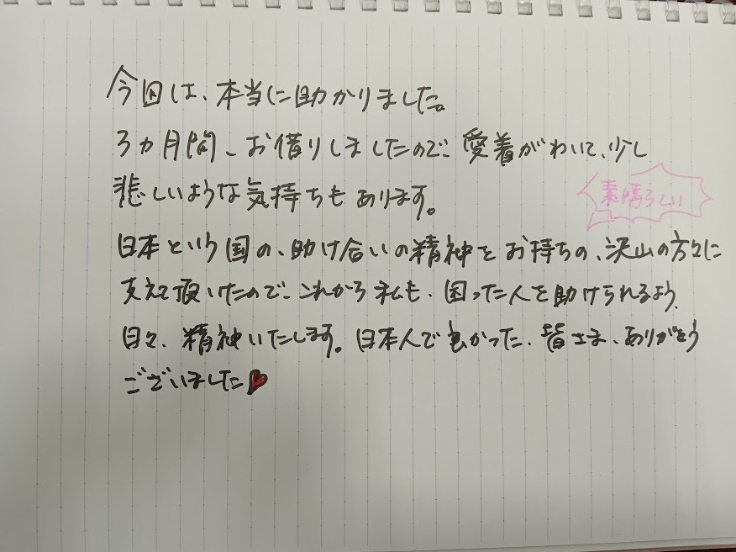 今回は、本当に助かりました。
3ヵ月間、お借りしましたので、愛着がわいて、少し
悲しいような気持ちもあります。
素晴らしい
日本という国の、助け合いの精神をお持ちの、沢山の方々に
支えて頂いたので、これから私も、困った人を助けられるよう、
日々、精神いたします。日本人で良かった、皆さま、ありがとう
ございました